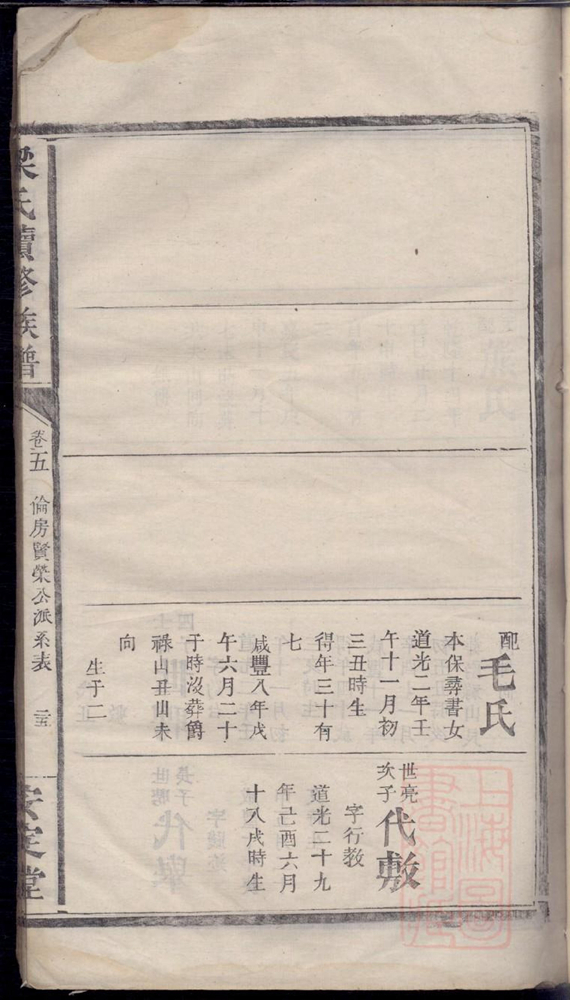 配毛氏
本保彝書女
道光二年壬
午十一月初
三丑時生
得年三十有
七
咸豐八年戌
午六月二十
于時沒葬爵
祿山丑山未
向
生于二
世亮次子代敷
字行教
道光二十九
年己酉六月
十八戌時生
梁氏續修族譜
卷五
倫房賢榮公派系表
二五
安定堂
上海圖書館藏